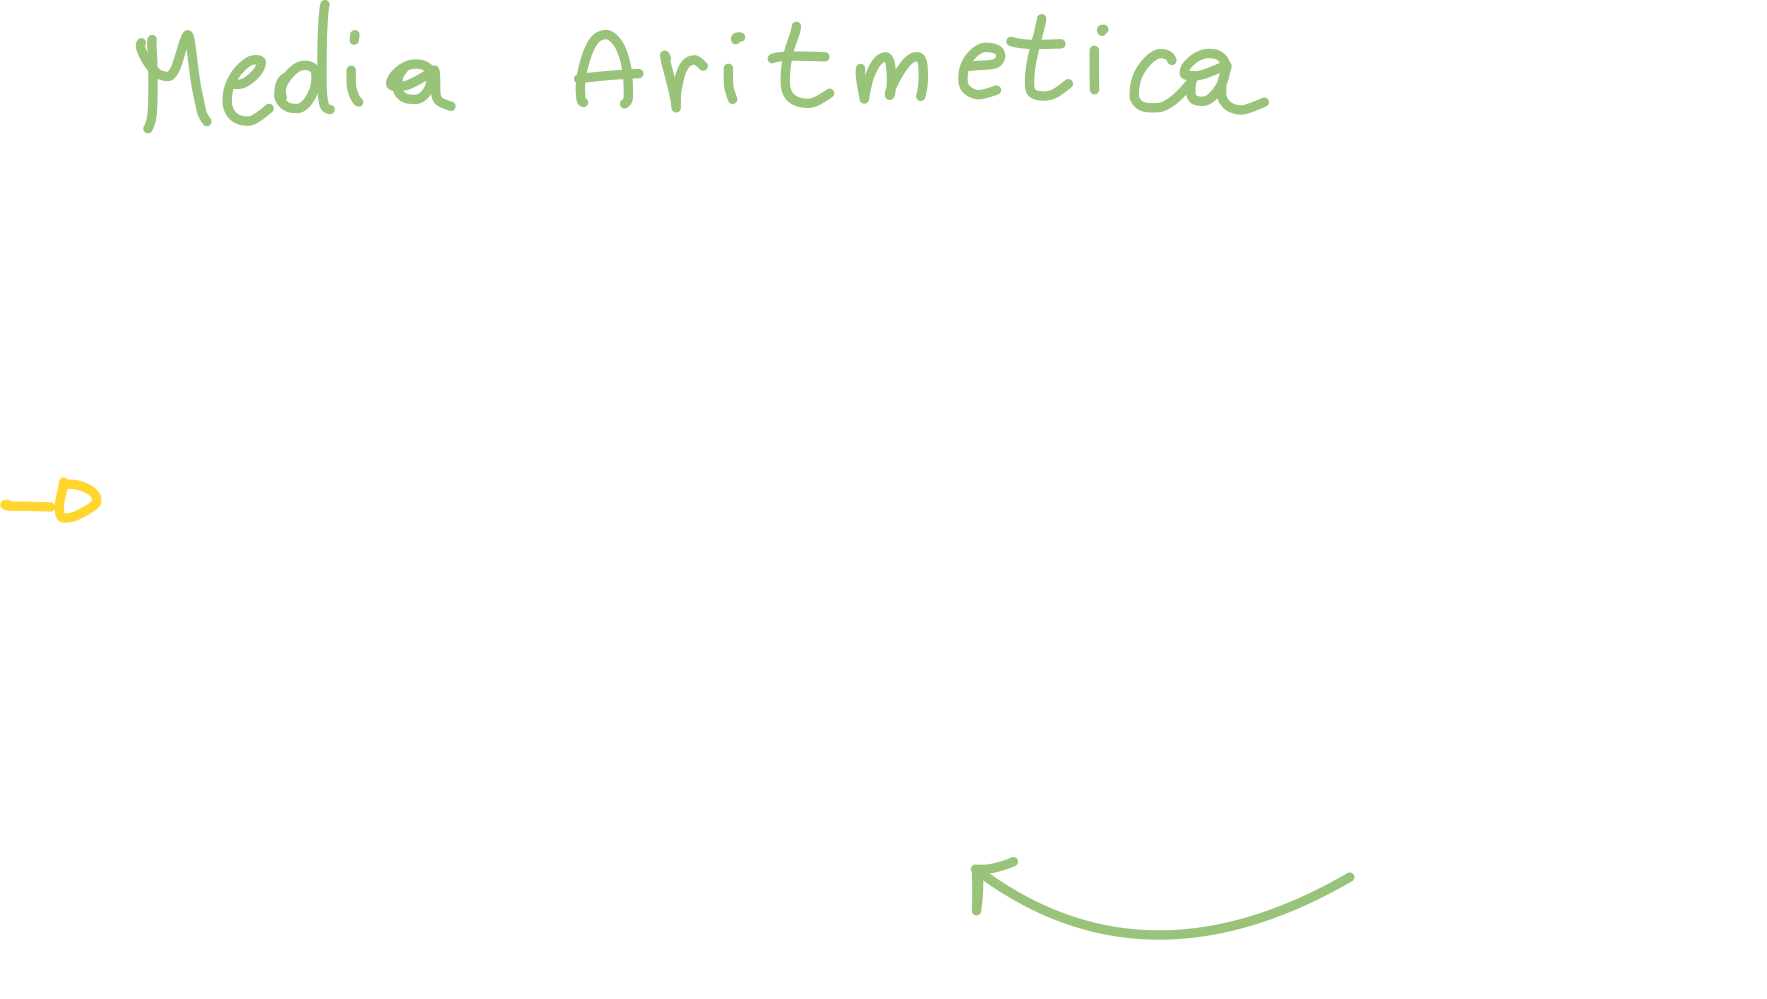 Media Aritmetica